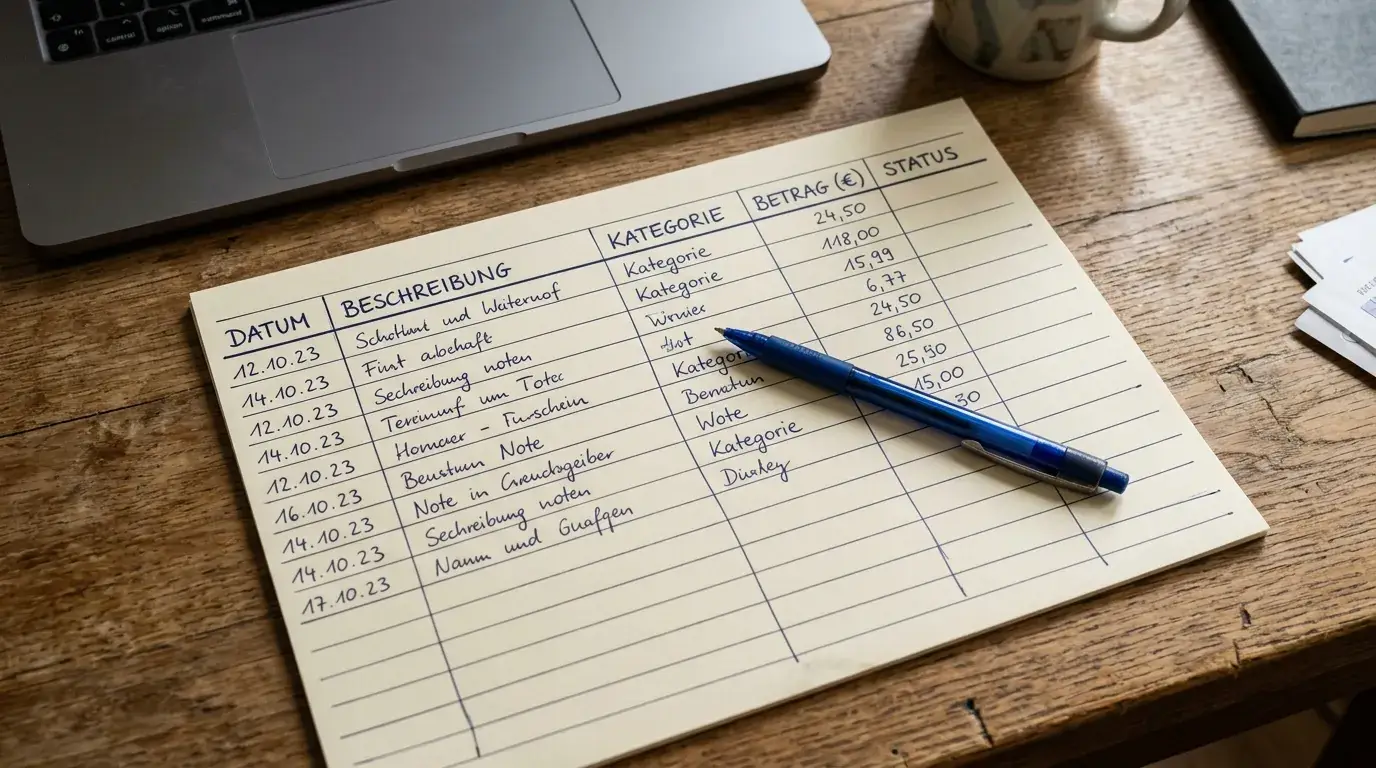 fn control option command
DATUM BESCHREIBUNG KATEGORIE BETRAG (€) STATUS
12.10.23 Schotlant und Waiternof Kategorie 24,50
14.10.23 Fint abehaft Kategorie 118,00
12.10.23 Sechreibung noten 15,99
14.10.23 Tereinunf um Totec 6,77
12.10.23 Homcier - Turschein Kategorie 24,50
16.10.23 Beustum Note 86,50
14.10.23 Note in Wote 25,50
14.10.23 Sechreibung noten Kategorie 15,00
17.10.23 und 30